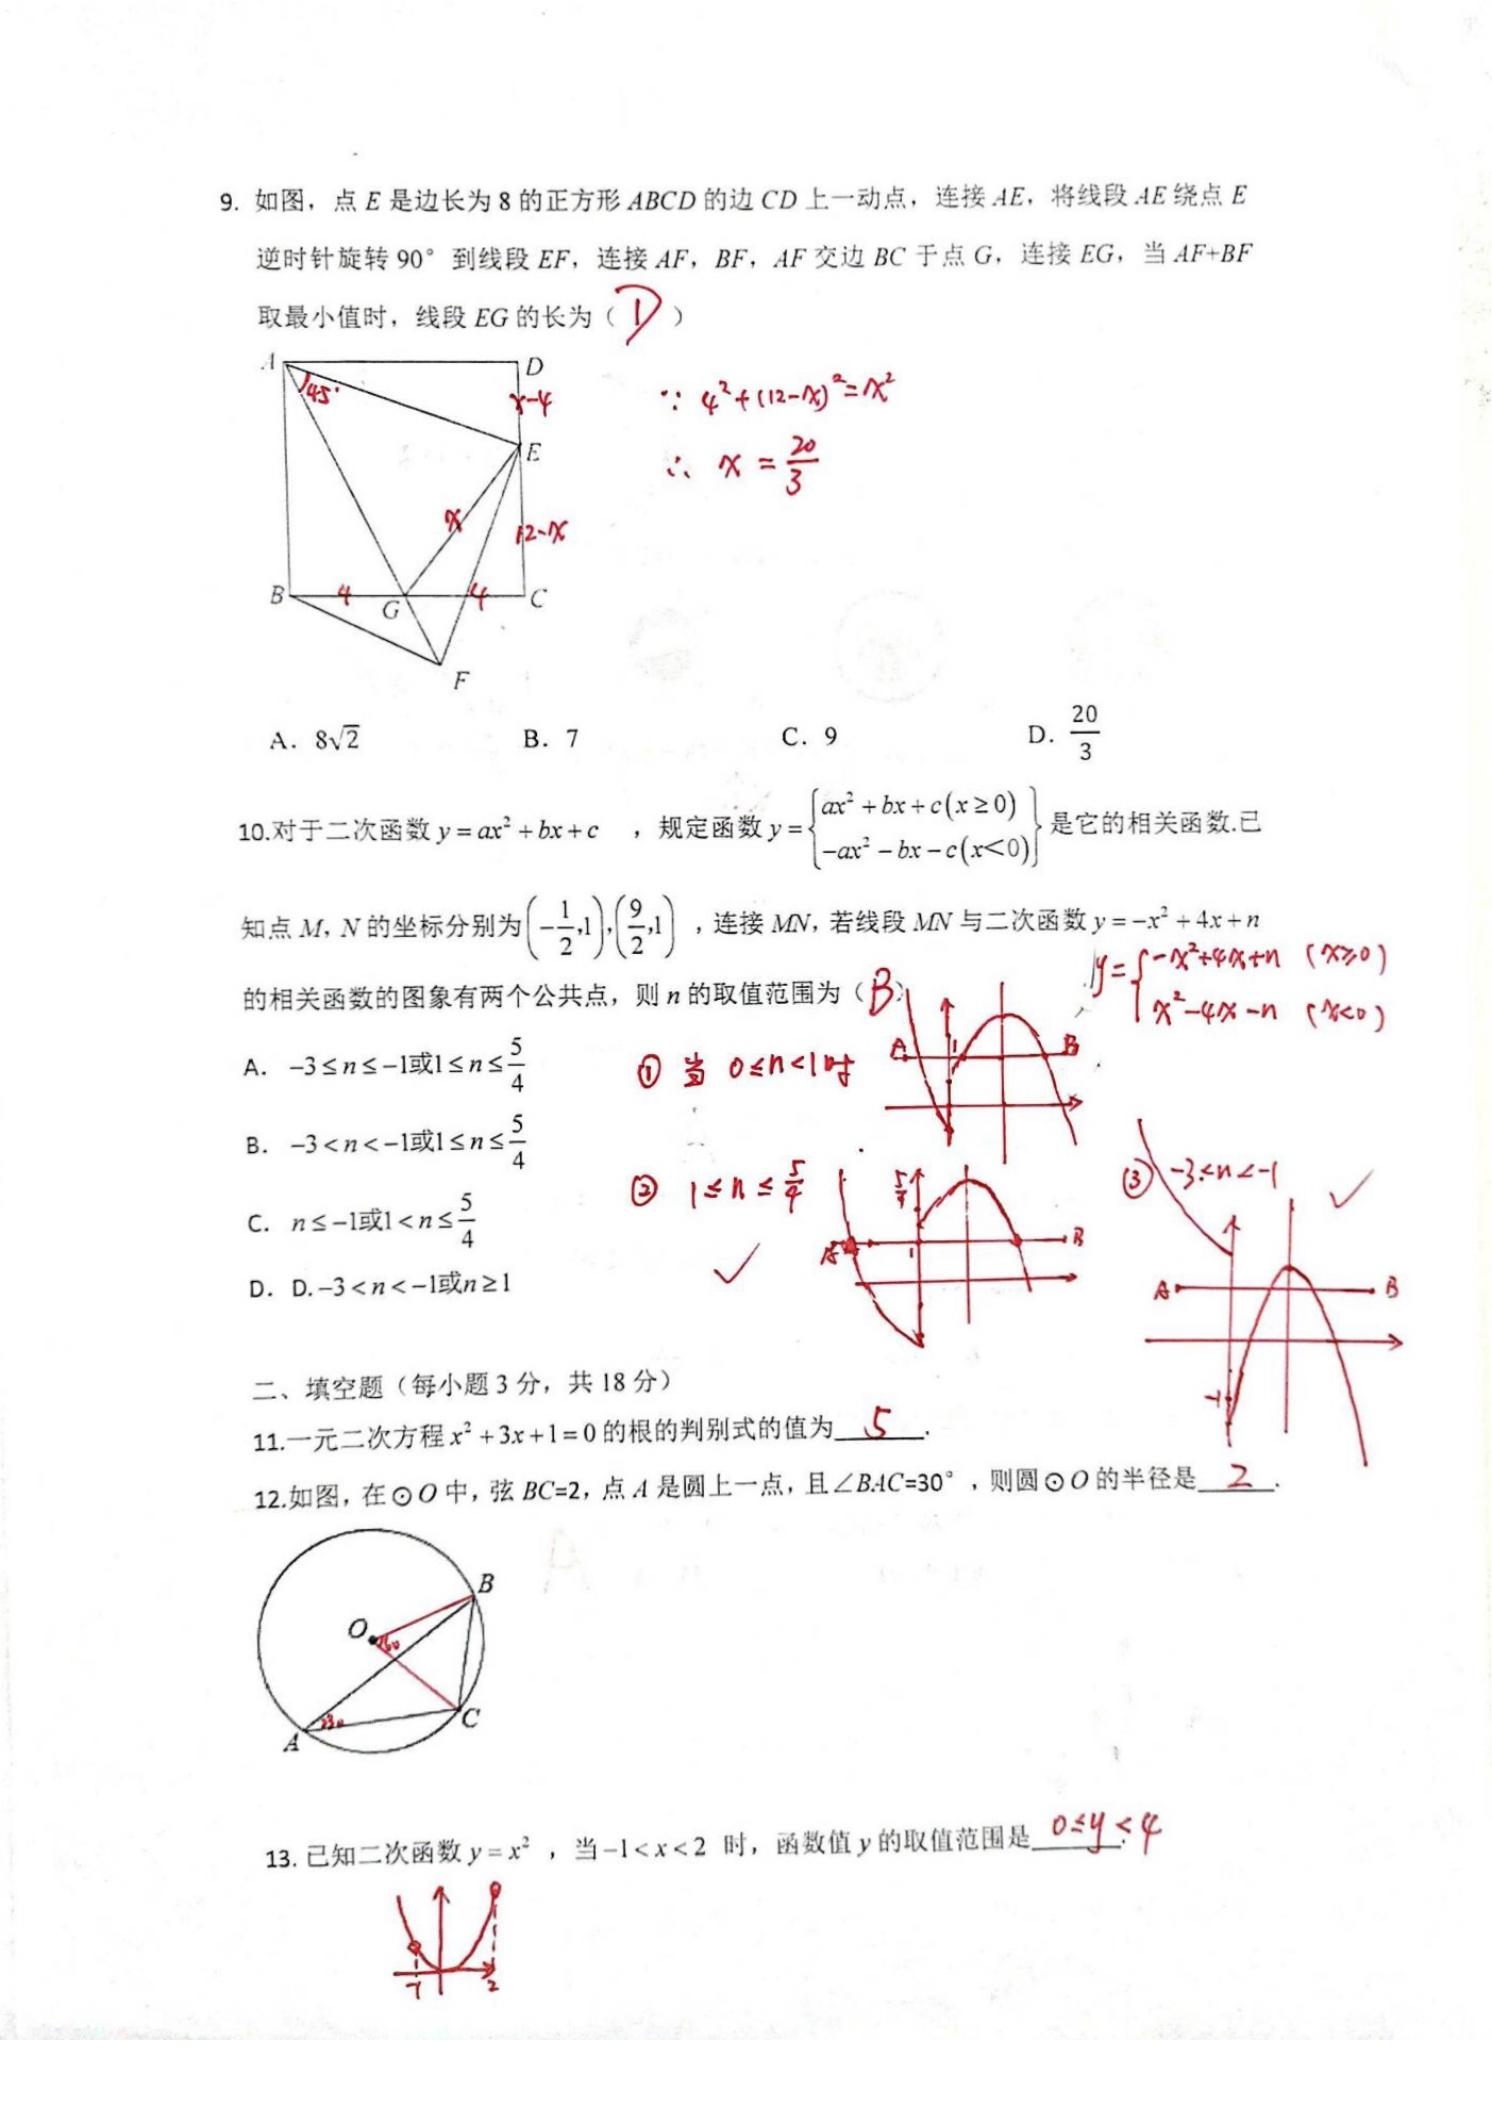 9. 如图，点 E 是边长为 8 的正方形 ABCD 的边 CD 上一动点，连接 AE，将线段 AE 绕点 E
逆时针旋转 90° 到线段 EF，连接 AF，BF，AF 交边 BC 于点 G，连接 EG，当 AF+BF
取最小值时，线段 EG 的长为（ D ）
A D
45° x-4
∵ 4²+(12-x)²=x²
E
∴ x = 20/3
x 12-x
B 4 G 4 C
F
A. 8√2 B. 7 C. 9 D. 20/3
10.对于二次函数 y = ax² + bx + c ，规定函数 y = {ax² + bx + c (x ≥ 0) -ax² - bx - c (x<0)} 是它的相关函数.已
知点 M, N 的坐标分别为 (-1/2,1),(9/2,1) ，连接 MN, 若线段 MN 与二次函数 y = -x² + 4x + n
的相关函数的图象有两个公共点，则 n 的取值范围为（ B ）
y = { -x²+4x+n (x≥0)
x²-4x-n (x<0)
A. -3 ≤ n ≤ -1或1 ≤ n ≤ 5/4
① 当 0≤n<1时
A 1 B
B. -3 < n < -1或1 ≤ n ≤ 5/4
② 1≤n≤5/4 ✓
5/4 A 1 B
③ -3<n<-1 ✓
A B -1
C. n ≤ -1或1 < n ≤ 5/4
D. D. -3 < n < -1或n ≥ 1
二、填空题（每小题 3 分，共 18 分）
11.一元二次方程 x² + 3x + 1 = 0 的根的判别式的值为 5 .
12.如图, 在⊙O 中, 弦 BC=2, 点 A 是圆上一点, 且∠BAC=30° ，则圆⊙O 的半径是 2 .
B
O 60
30 C
A
13. 已知二次函数 y = x² ，当 -1 < x < 2 时，函数值 y 的取值范围是 0≤y<4 .
-1 2